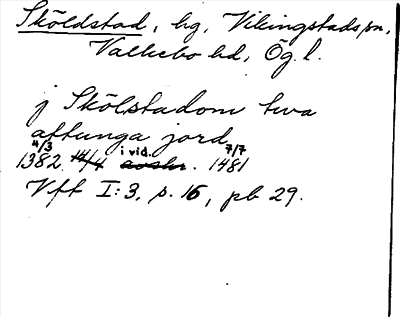 Sköldstad, hg, Vikingstads sn,
Valkebo hd, Ög. l.
j Skölstadom twa
attunga jord
4/3 i vid. 7/7
1382 14/4 avskr. 1481
Vff I:3, p. 16, pb 29.